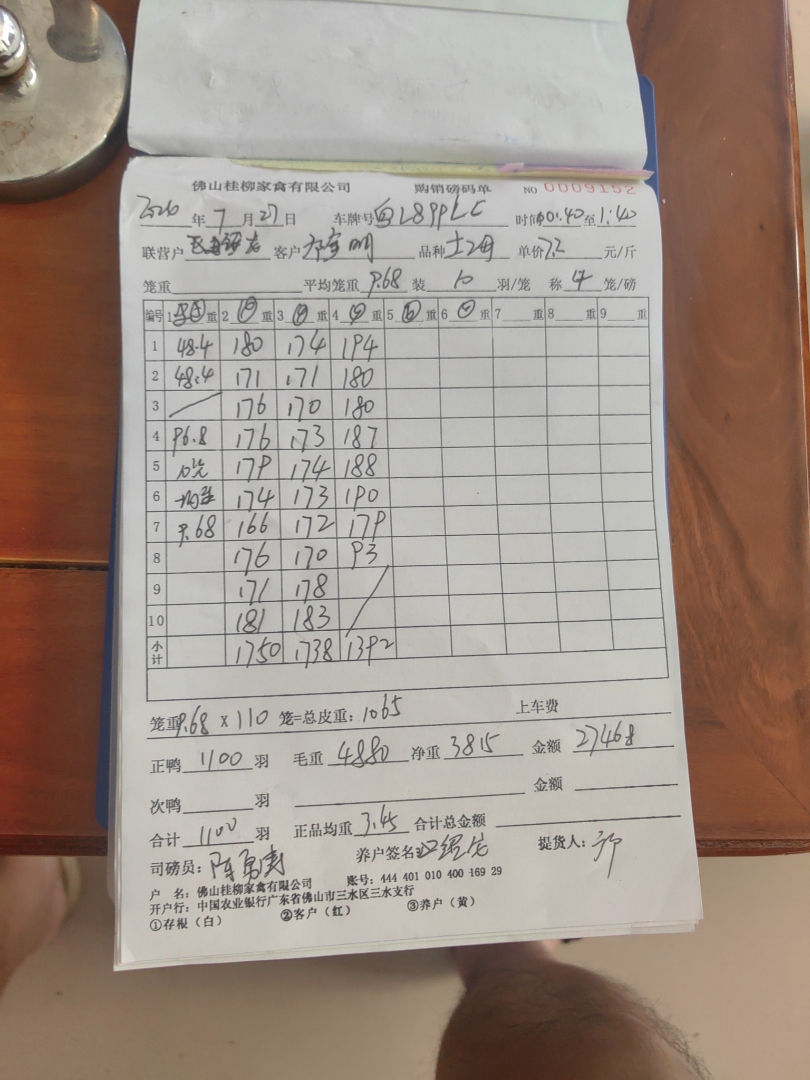 佛山桂柳家禽有限公司 购销磅码单 NO 0009152
2020 年 7 月 27 日 车牌号 时间 00:40 至 1:40
联营户 客户 品种 土2母 单价 7.2 元/斤
笼重 平均笼重 9.68 装 10 羽/笼 称 4 笼/磅
编号 1 空笼 重 2 重 3 重 4 重 5 重 6 重 7 重 8 重 9 重
1 48.4 180 174 194
2 48.4 171 171 180
3 / 176 170 180
4 96.8 176 173 187
5 10笼 179 174 188
6 均重 174 173 190
7 9.68 166 172 179
8 176 170 93
9 171 178 /
10 181 183
小计 1750 1738 1392
笼重 9.68 × 110 笼=总皮重: 1065 上车费
正鸭 1100 羽 毛重 4880 净重 3815 金额 27468
次鸭 羽 金额
合计 1100 羽 正品均重 3.45 合计总金额
司磅员: 陈 养户签名: 提货人:
户 名: 佛山桂柳家禽有限公司 账号: 444 401 010 400 169 29
开户行: 中国农业银行广东省佛山市三水区三水支行
①存根（白） ②客户（红） ③养户（黄）